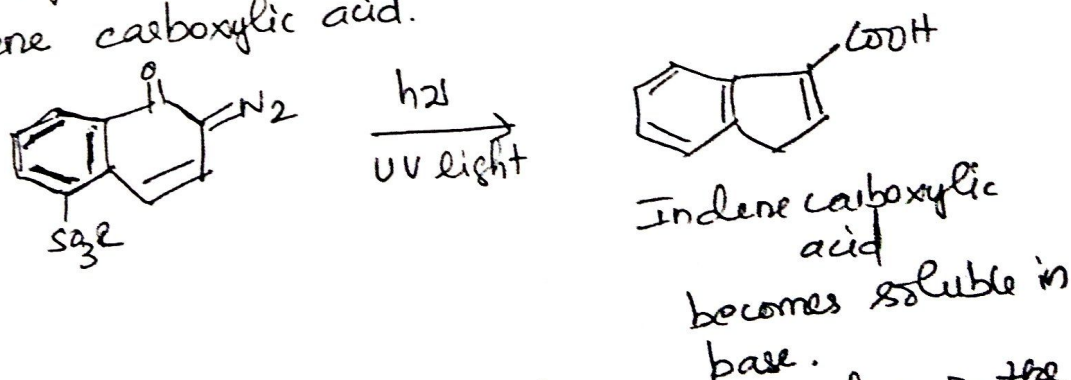 ene carboxylic acid.
O
N2
hν
UV light
SO3R
COOH
Indene carboxylic
acid
becomes soluble in
base.
the